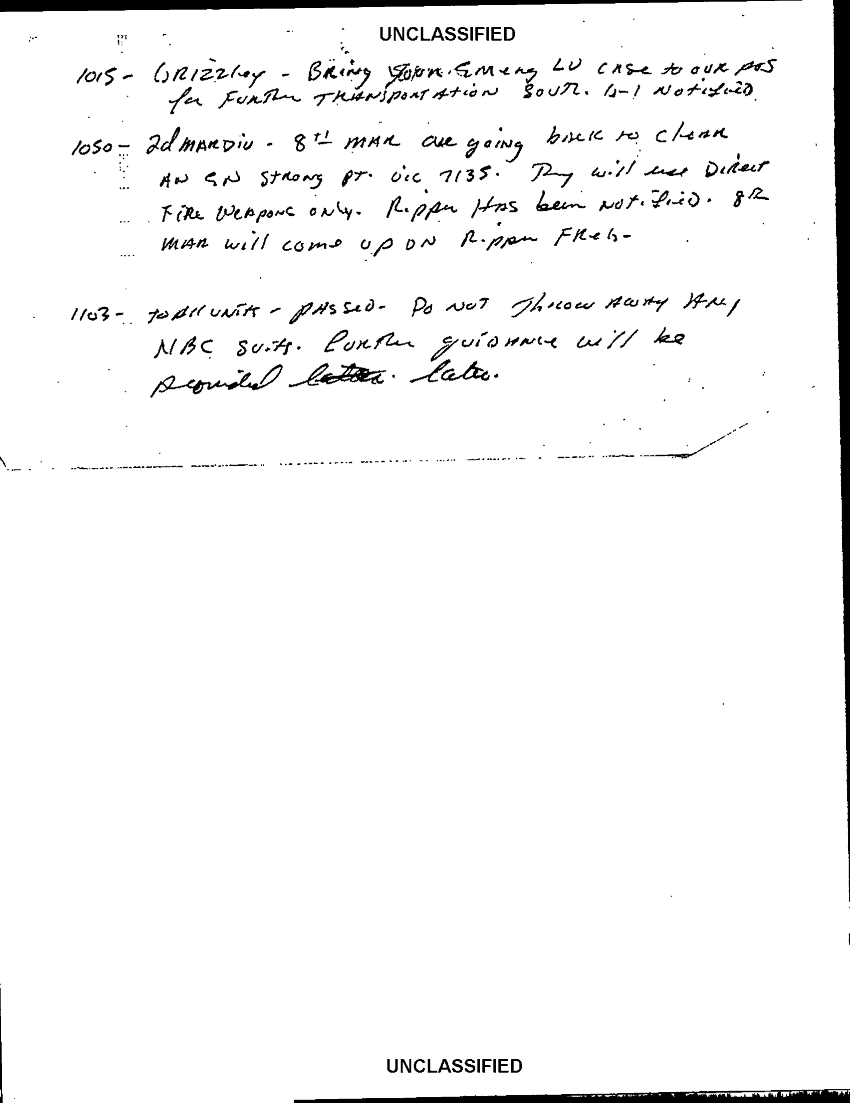 UNCLASSIFIED
1015 - GRIZZley - BRING your Emerg LV CASE to our pos
for FURTHER TRANSPORTATION SOUTH. G-1 NotiFied
1050 - 2d MARDIV - 8TH MAR are going back to clear
AN EN STRONG pt. vic 7135. They will use Direct
FIRE WEAPONS only. Ripper HAS been Notified. 8th
MAR will come up ON Ripper FREQ-
1103 - to All UNITS - PASSED - Do NOT Throw AWAY ANY
NBC Suits. Further guidance will be
provided later.
UNCLASSIFIED